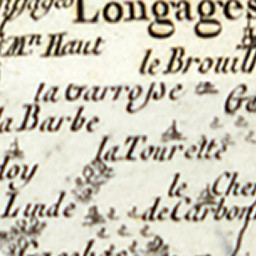 Longages
Mn Haut
le Brouill
la Garrosse
la Barbe
la Tourette
loy
le Cher
Linde
de Carbon